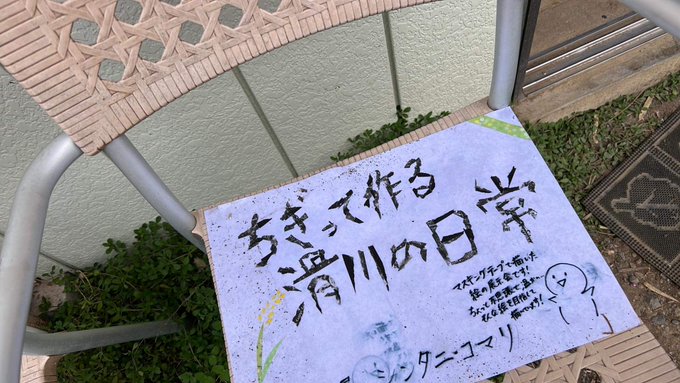 ちぎって作る
滑川の日常
マスキングテープで描いた
絵の展示会です!
ちょっと不思議で温かい…
そんな絵を目指して
描いてます!
シンタニ・コマリ